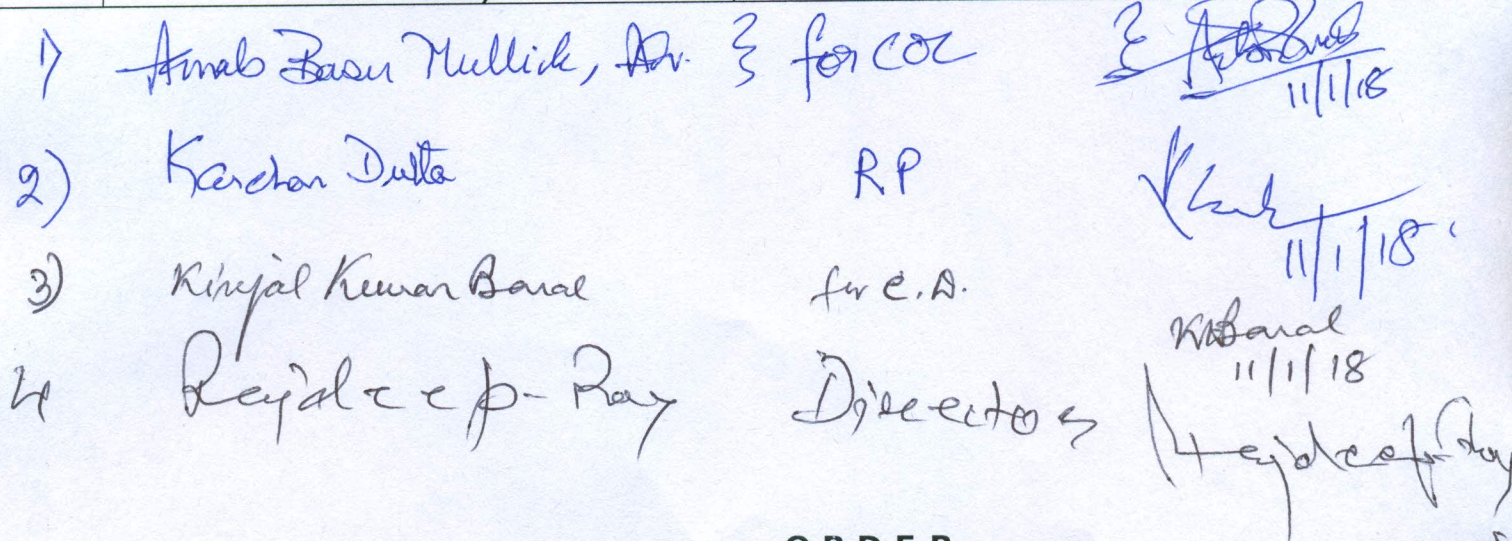 1) Arnab Basu Mullick, Adv. } for COC }
11/1/18
2) Kanchan Dutta RP
11/1/18
3) Kinjal Kumar Baral for C.A.
KBaral
11/1/18
4 Rajdeep-Ray Director Rajdeep Ray
ORDER